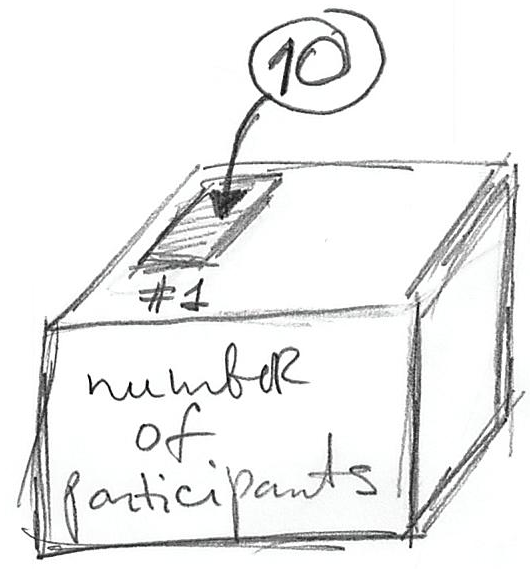 10
#1
number
of
participants